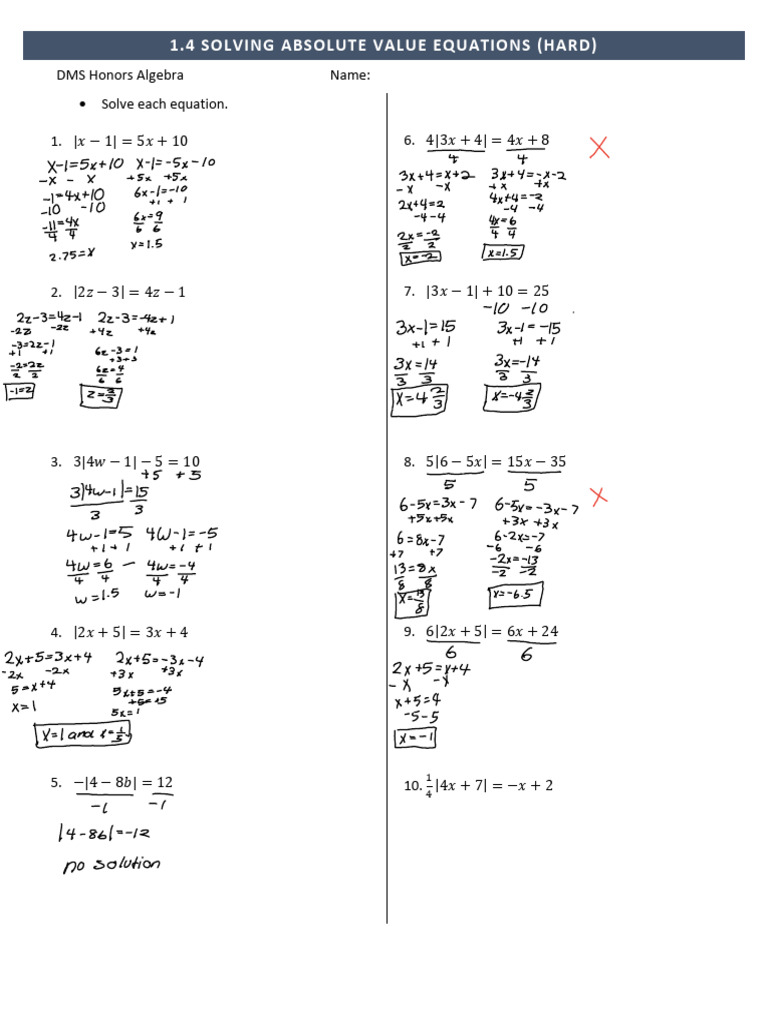 1.4 SOLVING ABSOLUTE VALUE EQUATIONS (HARD)
DMS Honors Algebra Name:
• Solve each equation.
1. |x − 1| = 5x + 10
x-1=5x+10 x-1=-5x-10
-x - x +5x +5x
-1=4x+10 6x-1=-10
-10 -10 +1 +1
-11=4x 6x=9
4 4 6 6
2.75=x x=1.5
2. |2z − 3| = 4z − 1
2z-3=4z-1 2z-3=-4z+1
-2z -2z +4z +4z
-3=2z-1 6z-3=1
+1 +1 +3+3
-2=2z 6z=4
2 2 6 6
-1=z z=2/3
3. 3|4w − 1| − 5 = 10
+5 +5
3|4w-1|=15
3 3
4w-1=5 4w-1=-5
+1 +1 +1 +1
4w=6 - 4w=-4
4 4 4 4
w=1.5 w=-1
4. |2x + 5| = 3x + 4
2x+5=3x+4 2x+5=-3x-4
-2x -2x +3x +3x
5=x+4 5x+5=-4
x=1 5x=1
x=1 and x=1/5
5. −|4 − 8b| = 12
-1 -1
|4-8b|=-12
no solution
6. 4|3x + 4| = 4x + 8 X
4 4
3x+4=x+2 3x+4=-x-2
-x -x +x +x
2x+4=2 4x+4=-2
-4-4 -4 -4
2x=-2 4x=6
2 2 4 4
x=-2 x=1.5
7. |3x − 1| + 10 = 25
-10 -10
3x-1=15 3x-1=-15
+1 +1 +1 +1
3x=14 3x=-14
3 3 3 3
x=4 2/3 x=-4 2/3
8. 5|6 − 5x| = 15x − 35
5 5 X
6-5x=3x-7 6-5x=-3x-7
+5x+5x +3x +3x
6=8x-7 6-2x=-7
+7 +7 -6 -6
13=8x -2x=-13
8 8 -2 -2
x=13/8 x=-6.5
9. 6|2x + 5| = 6x + 24
6 6
2x+5=x+4
-x -x
x+5=4
-5-5
x=-1
10. 1/4|4x + 7| = −x + 2